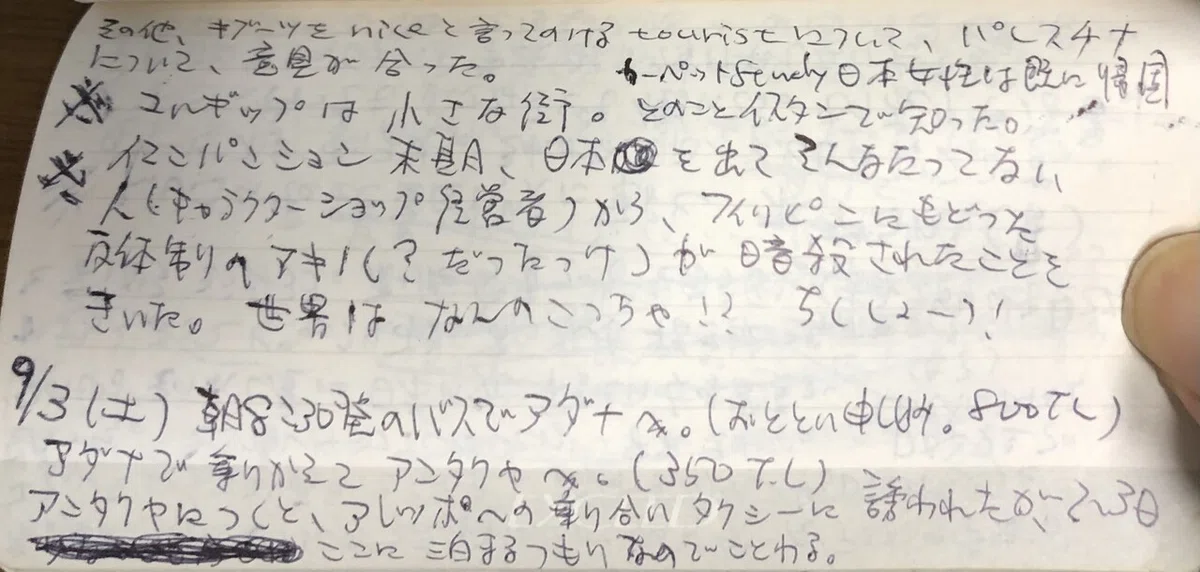 その他、キブーツを niceと言ってのける touristについて、パレスチナ
について、意見が合った。 カーペットstudy日本女性は既に帰国
※ ユルギップは小さな街。 そのことイスタンで知った。
※ イエニパンション 末期、日本を出てそんなたってない
人(キャラクターショップ経営者)から、フィリピンにもどった
反体制のアキノ(?だったっけ)が暗殺されたことを
きいた。世界はなんのこっちゃ!? ちくしょーう!
9/3(土) 朝8:30発のバスでアダナへ。(おととい申し込み。800TL)
アダナで乗りかえてアンタクヤへ。(350T.L)
アンタクヤにつくと、アレッポへの乗り合いタクシーに誘われたが、2、3日
ここに泊まるつもりなのでことわる。